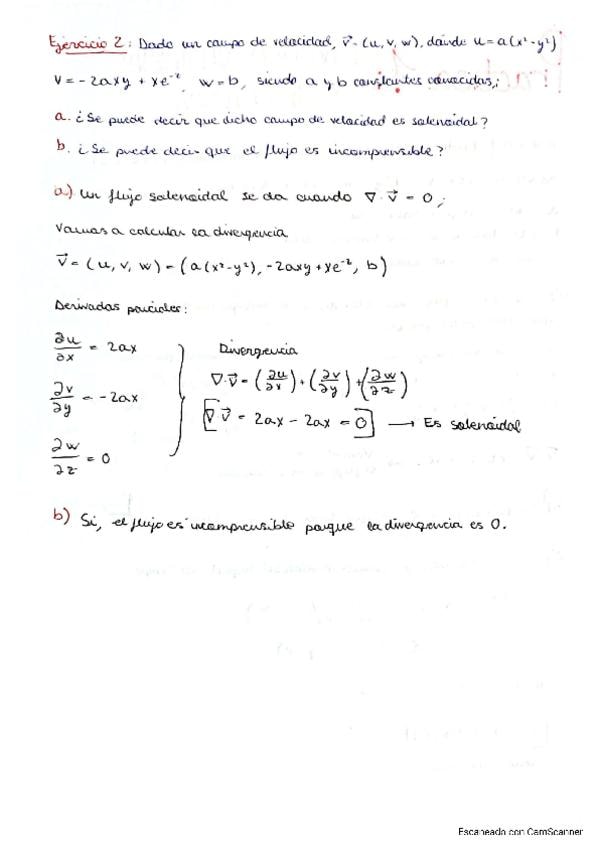 Ejercicio 2: Dado un campo de velocidad, v⃗ = (u, v, w), donde u = a(x² - y²)
v = -2axy + xe⁻ᶻ, w = b, siendo a y b constantes conocidas;
a. ¿Se puede decir que dicho campo de velocidad es solenoidal?
b. ¿Se puede decir que el flujo es incompresible?
a) Un flujo solenoidal se da cuando ∇·v⃗ = 0;
Vamos a calcular la divergencia
v⃗ = (u, v, w) = (a(x²-y²), -2axy + xe⁻ᶻ, b)
Derivadas parciales:
∂u/∂x = 2ax
∂v/∂y = -2ax
∂w/∂z = 0
Divergencia
∇·v⃗ = (∂u/∂x) + (∂v/∂y) + (∂w/∂z)
[∇·v⃗ = 2ax - 2ax = 0] → Es solenoidal
b) Si, el flujo es incomprensible porque la divergencia es 0.
Escaneado con CamScanner